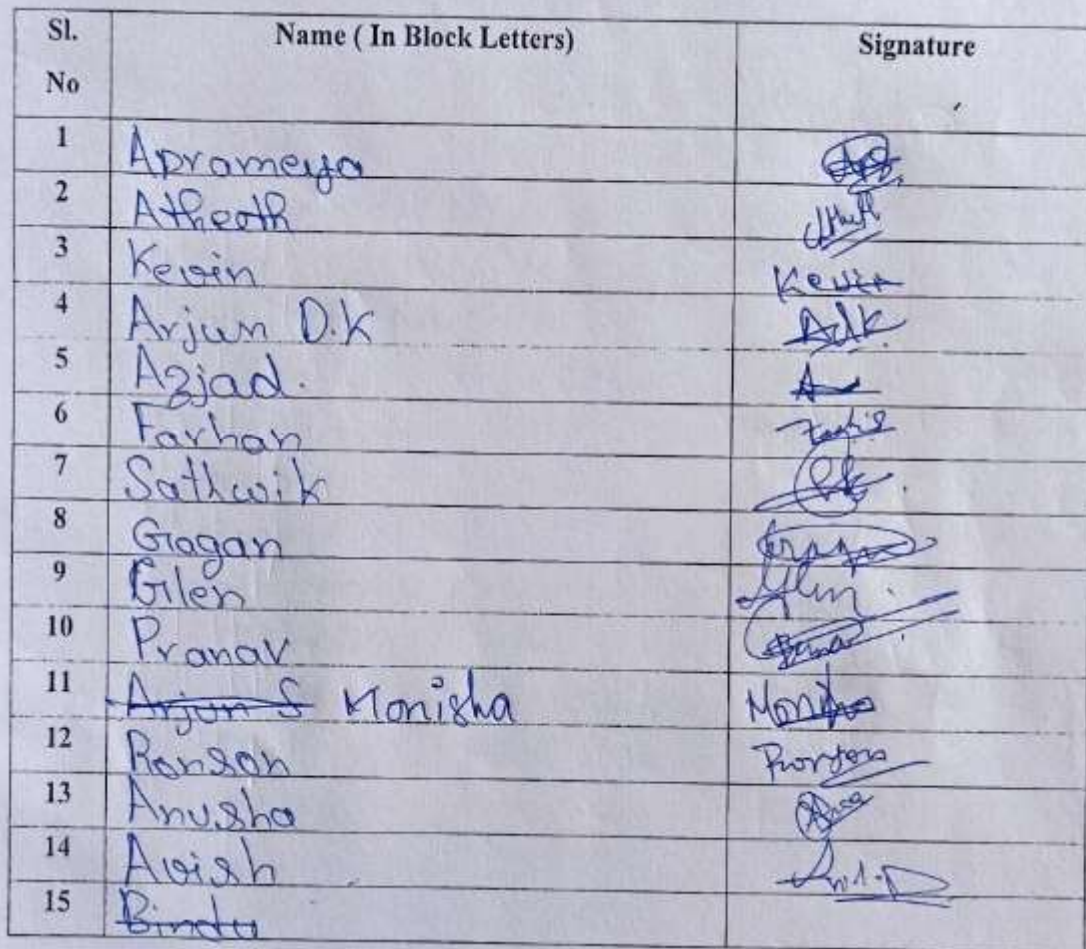 Sl. No Name ( In Block Letters) Signature
1 Aprameya
2 Atheeth
3 Kevin Kevin
4 Arjun D.K ADK
5 Azjad.
6 Farhan
7 Sathwik
8 Gagan Gagan
9 Glen Glen
10 Pranav
11 Arjun S Monisha Monisha
12 Ronson Ronson
13 Anusha
14 Avish
15 Bindu